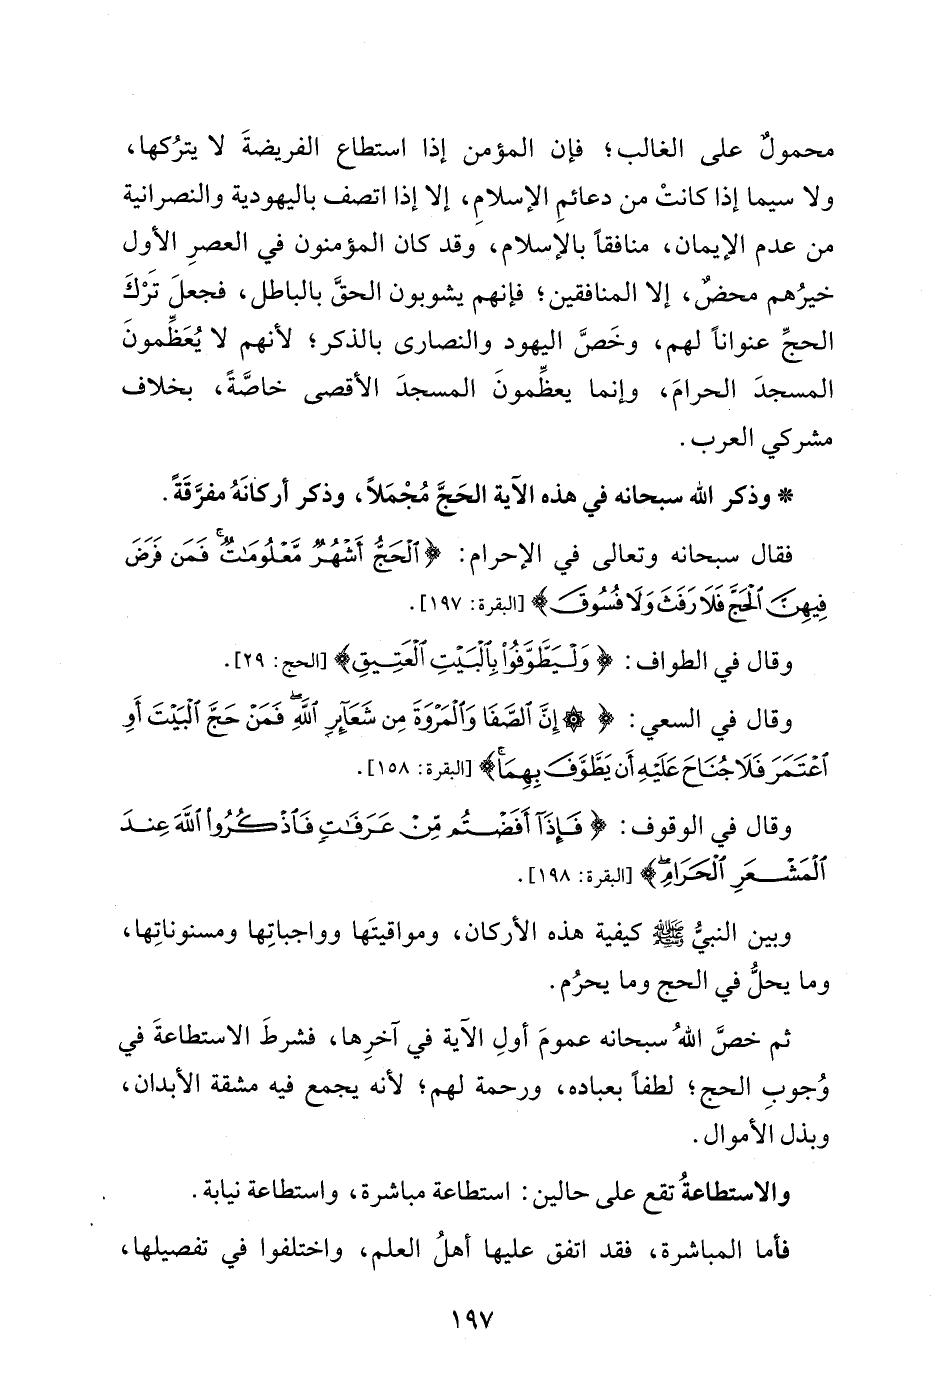 محمولٌ على الغالب؛ فإن المؤمن إذا استطاع الفريضةَ لا يترُكها،
ولا سيما إذا كانتْ من دعائمِ الإسلامِ، إلا إذا اتصف باليهودية والنصرانية
من عدم الإيمان، منافقاً بالإسلام، وقد كان المؤمنون في العصرِ الأول
خيرُهم محضٌ، إلا المنافقين؛ فإنهم يشوبون الحقَّ بالباطل، فجعلَ تَرْكَ
الحجِّ عنواناً لهم، وخَصَّ اليهود والنصارى بالذكر؛ لأنهم لا يُعَظِّمونَ
المسجدَ الحرامَ، وإنما يعظِّمونَ المسجدَ الأقصى خاصَّةً، بخلاف
مشركي العرب.
* وذكر الله سبحانه في هذه الآية الحَجَّ مُجْمَلاً، وذكر أركانَهُ مفرَّقَةً.
فقال سبحانه وتعالى في الإحرام: ﴿ٱلْحَجُّ أَشْهُرٌ مَّعْلُومَٰتٌ ۚ فَمَن فَرَضَ
فِيهِنَّ ٱلْحَجَّ فَلَا رَفَثَ وَلَا فُسُوقَ﴾ [البقرة: ١٩٧].
وقال في الطواف: ﴿وَلْيَطَّوَّفُوا۟ بِٱلْبَيْتِ ٱلْعَتِيقِ﴾ [الحج: ٢٩].
وقال في السعي: ﴿۞ إِنَّ ٱلصَّفَا وَٱلْمَرْوَةَ مِن شَعَآئِرِ ٱللَّهِ ۖ فَمَنْ حَجَّ ٱلْبَيْتَ أَوِ
ٱعْتَمَرَ فَلَا جُنَاحَ عَلَيْهِ أَن يَطَّوَّفَ بِهِمَا ۚ﴾ [البقرة: ١٥٨].
وقال في الوقوف: ﴿فَإِذَآ أَفَضْتُم مِّنْ عَرَفَٰتٍ فَٱذْكُرُوا۟ ٱللَّهَ عِندَ
ٱلْمَشْعَرِ ٱلْحَرَامِ ۖ﴾ [البقرة: ١٩٨].
وبين النبيُّ ﷺ كيفية هذه الأركان، ومواقيتَها وواجباتِها ومسنوناتِها،
وما يحلُّ في الحج وما يحرُم.
ثم خصَّ اللهُ سبحانه عمومَ أولِ الآية في آخرِها، فشرطَ الاستطاعةَ في
وُجوبِ الحج؛ لطفاً بعباده، ورحمة لهم؛ لأنه يجمع فيه مشقة الأبدان،
وبذل الأموال.
والاستطاعةُ تقع على حالين: استطاعة مباشرة، واستطاعة نيابة.
فأما المباشرة، فقد اتفق عليها أهلُ العلم، واختلفوا في تفصيلها،
١٩٧